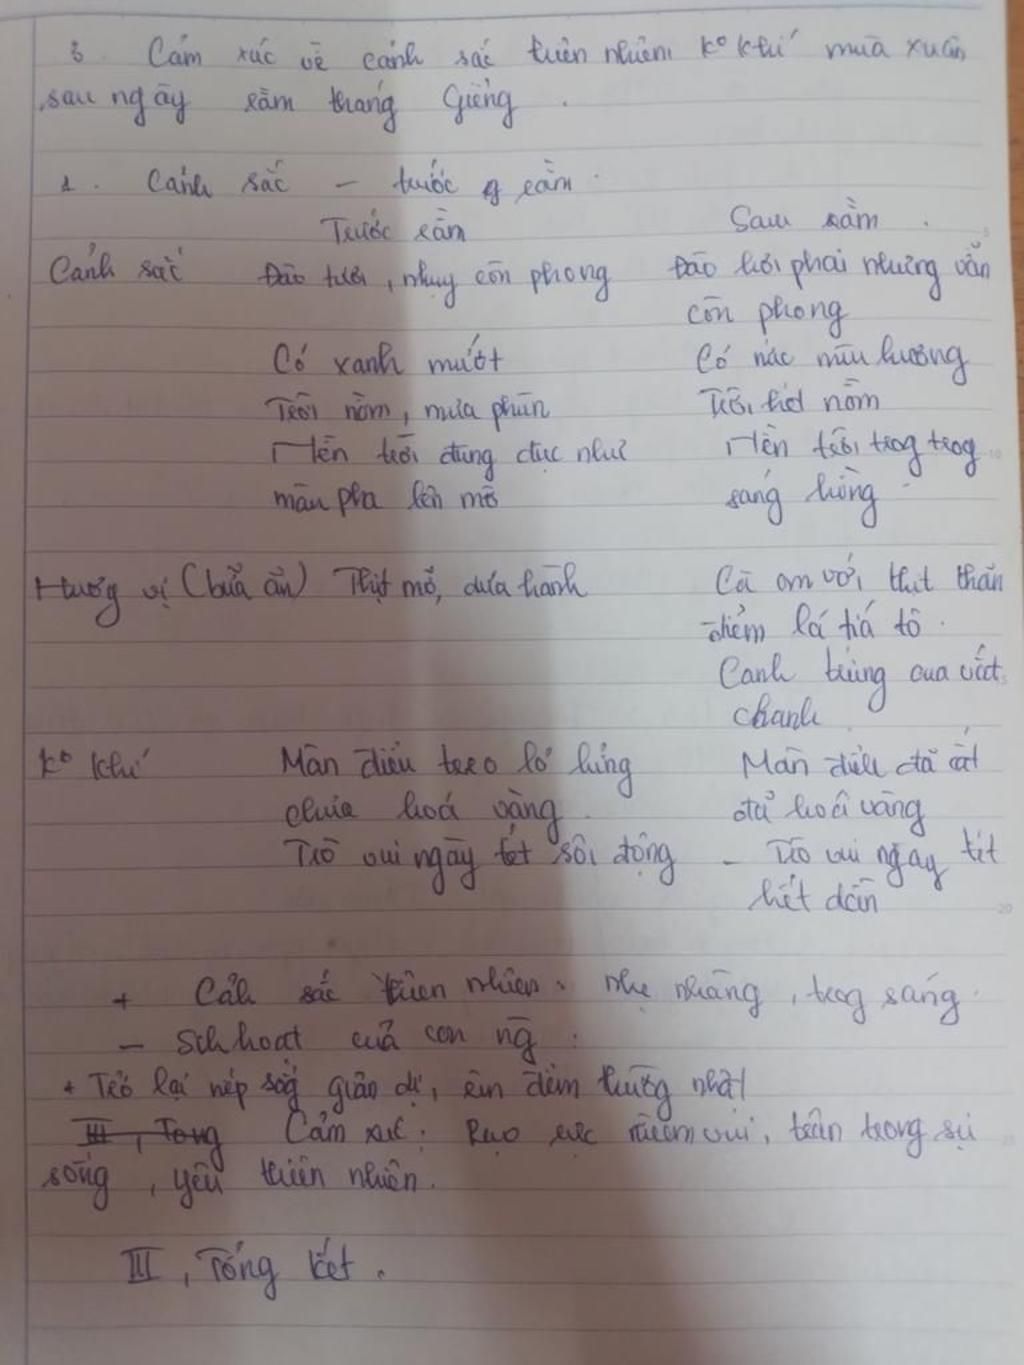 3. Cảm xúc về cảnh sắc thiên nhiên kº khí mùa xuân
sau ngày rằm tháng Giêng.
1. Cảnh sắc - trước rằm.
Trước rằm Sau rằm.
Cảnh sắc Đào tươi, nhụy còn phong Đào hơi phai nhưng vẫn
còn phong
Cỏ xanh mướt Cỏ nức mùi hương
Trời nồm, mưa phùn Trời hết nồm
Nền trời đùng đục như Nền trời trog trog
màu pha lên mờ sáng hồng
Hươg vị (bữa ăn) Thịt mỡ, dưa hành Cà om với thịt thăn
điểm lá tía tô.
Canh trứng cua vắt
chanh
kº khí Màn điều treo lơ lửng Màn điều đã cất
chưa hoá vàng đã hoá vàng
Trò vui ngày tết sôi động - Trò vui ngày tết
hết dần
+ Cảnh sắc thiên nhiên: nhẹ nhàng, trog sáng.
- Sihhoạt của con ng:
+ Trở lại nếp sốg giản dị, êm đềm thườg nhật
III, Tổng Cảm xúc: Rạo rực niềm vui, trân trọng sự
sống, yêu thiên nhiên.
III, Tổng kết.